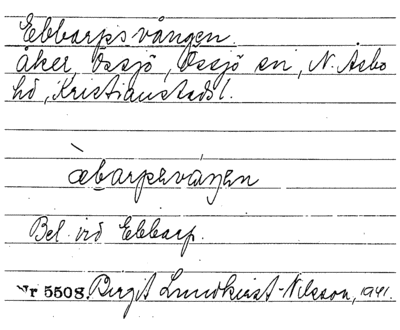 Ebbarpsvången.
åker, Össjö, Össjö sn, N. Åsbo
hd, Kristianstads l.
àbarpsváŋen
Bel. vid Ebbarp.
Nr 5508. Birgit Lundkvist-Nilsson, 1941.